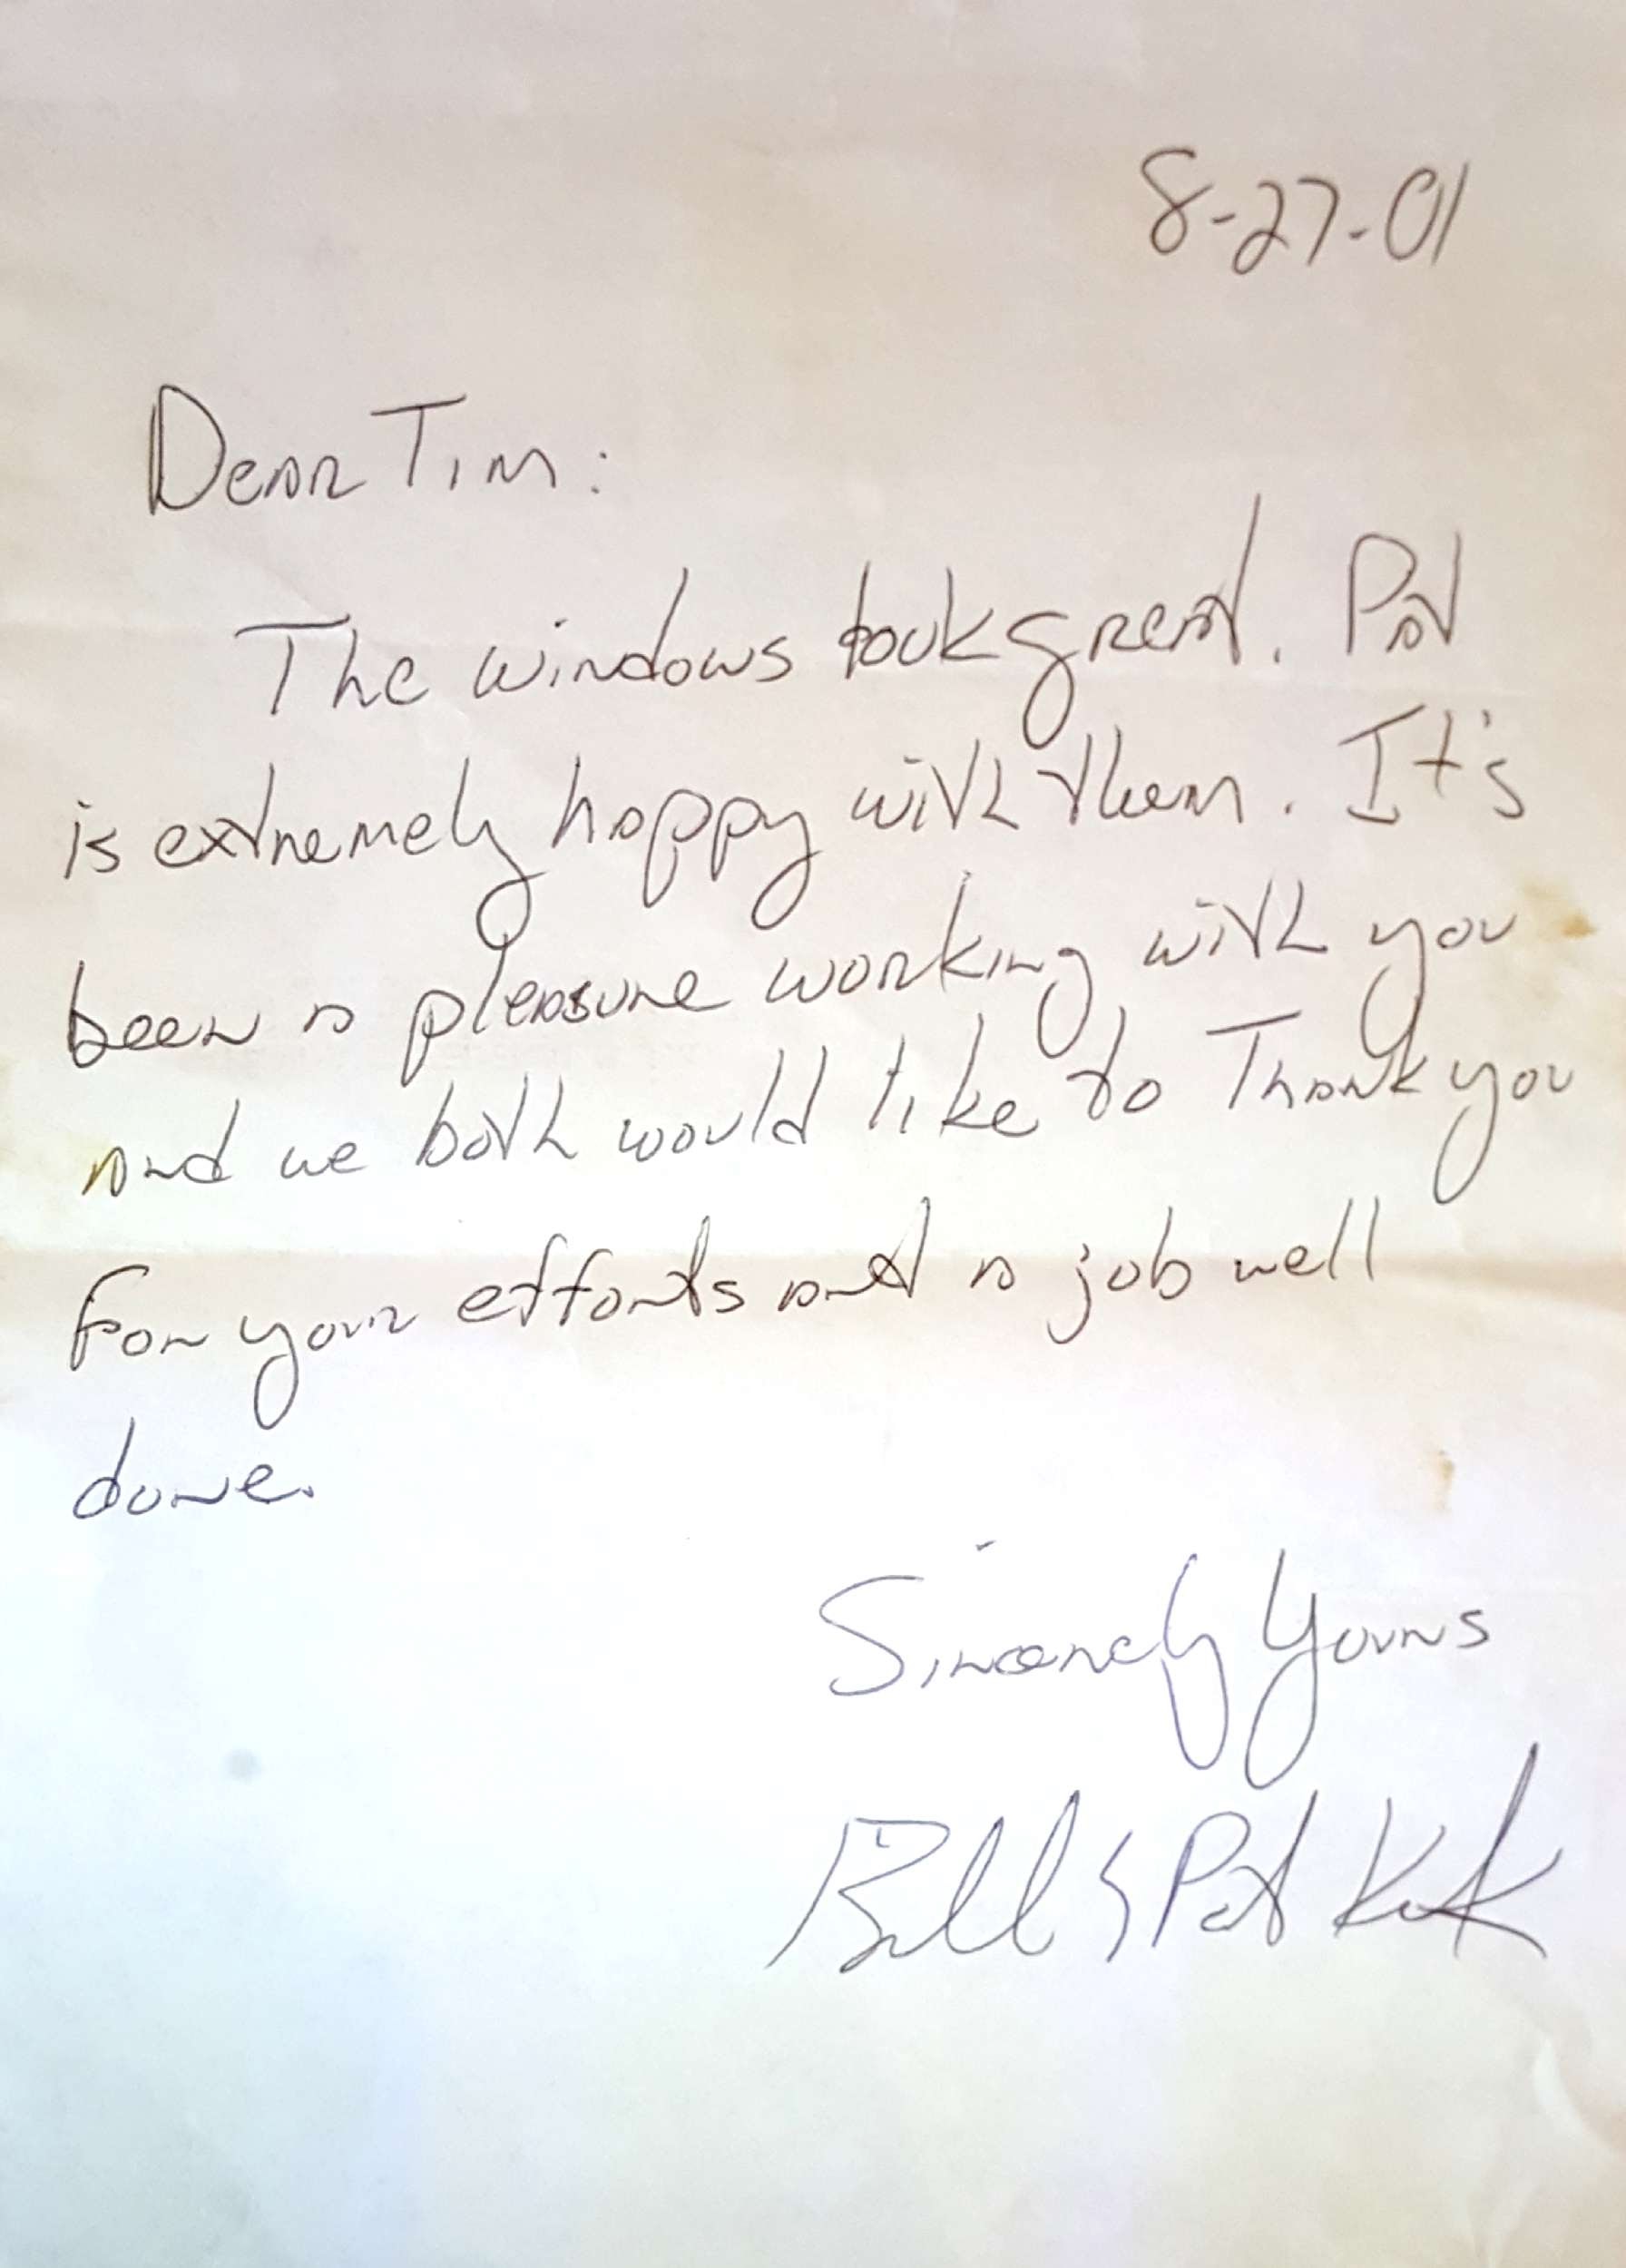 8-27-01
Dear Tim:
The windows look great. Pat
is extremely happy with them. It's
been a pleasure working with you
and we both would like to Thank you
for your efforts and a job well
done.
Sincerely Yours
Bill & Pat